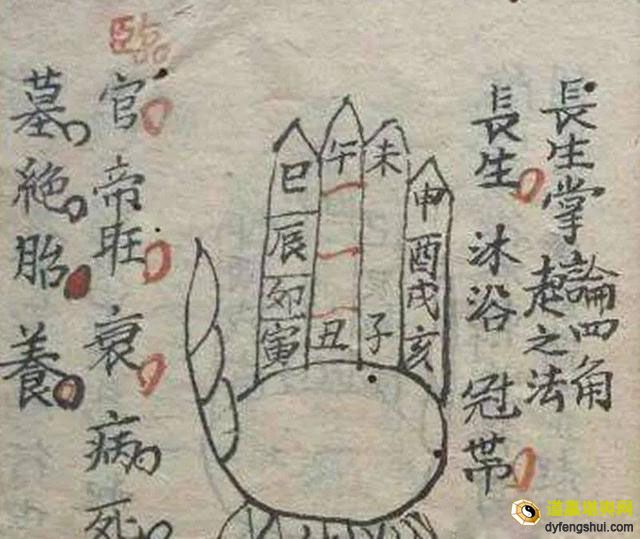 長生掌
論四角
起之法
長生 沐浴 冠帶
巳 午 未 申
辰 酉
卯 戌
寅 丑 子 亥
臨官 帝旺 衰 病 死
墓 絶 胎 養
dyfengshui.com